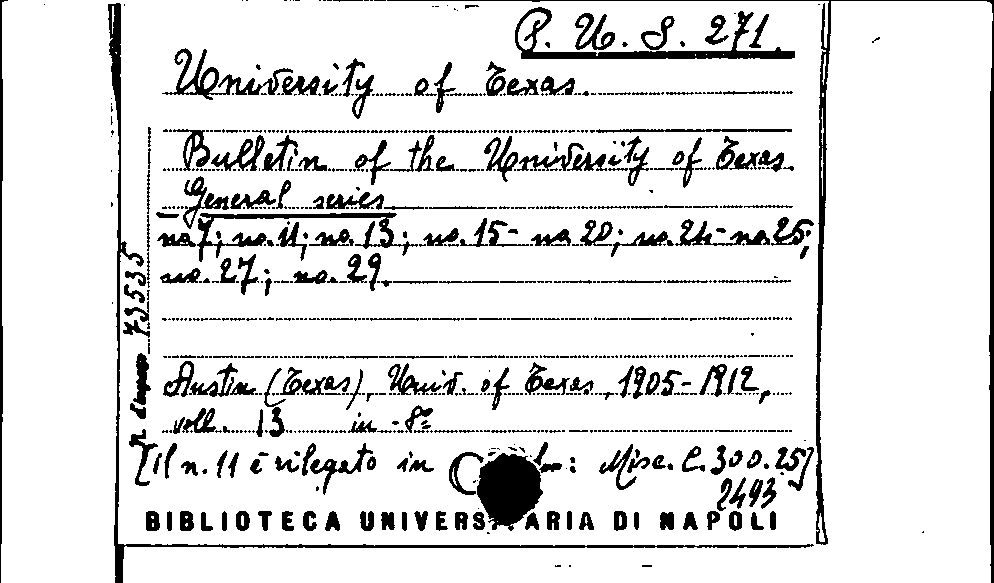 P. U. S. 271.
University of Texas.
Bulletin of the University of Texas.
General series.
no. 7; no. 11; no. 13; no. 15 - no 20; no. 24 - no. 25;
no. 27; no. 29.
Austin (Texas), Univ. of Texas, 1905-1912,
voll. 13 in -8º
[Il n. 11 è rilegato in : Misc. C. 300.25]
2493
BIBLIOTECA UNIVERSITARIA DI NAPOLI
n. d'ingresso 73535